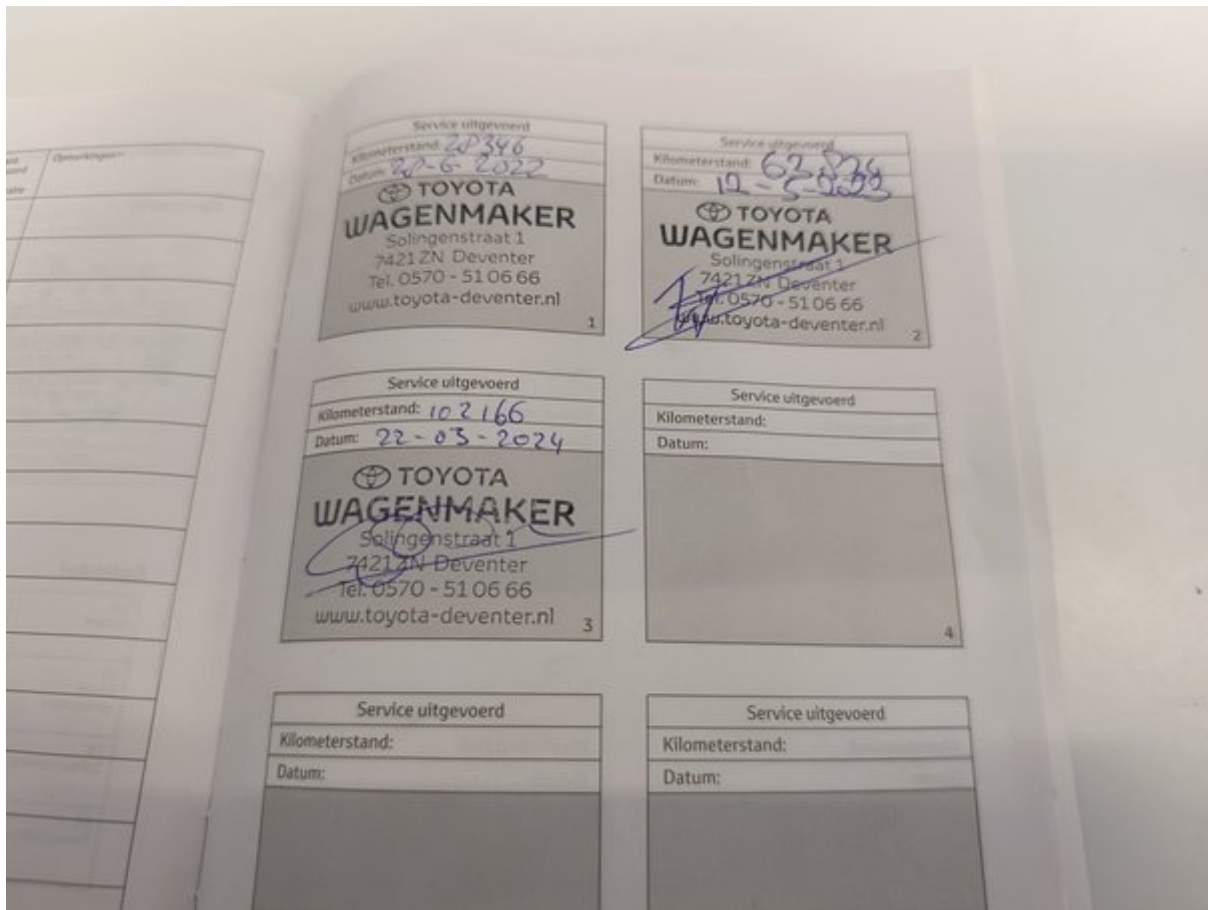 Opmerkingen
Service uitgevoerd
Kilometerstand: 28346
Datum: 20-6-2022
TOYOTA
WAGENMAKER
Solingenstraat 1
7421 ZN Deventer
Tel. 0570 - 51 06 66
www.toyota-deventer.nl
1
Service uitgevoerd
Kilometerstand:
Datum: 12-5-2023
TOYOTA
WAGENMAKER
Solingenstraat 1
7421 ZN Deventer
Tel. 0570 - 51 06 66
www.toyota-deventer.nl
2
Service uitgevoerd
Kilometerstand: 102166
Datum: 22-03-2024
TOYOTA
WAGENMAKER
Solingenstraat 1
7421 ZN Deventer
Tel. 0570 - 51 06 66
www.toyota-deventer.nl
3
Service uitgevoerd
Kilometerstand:
Datum:
4
Service uitgevoerd
Kilometerstand:
Datum:
Service uitgevoerd
Kilometerstand:
Datum: